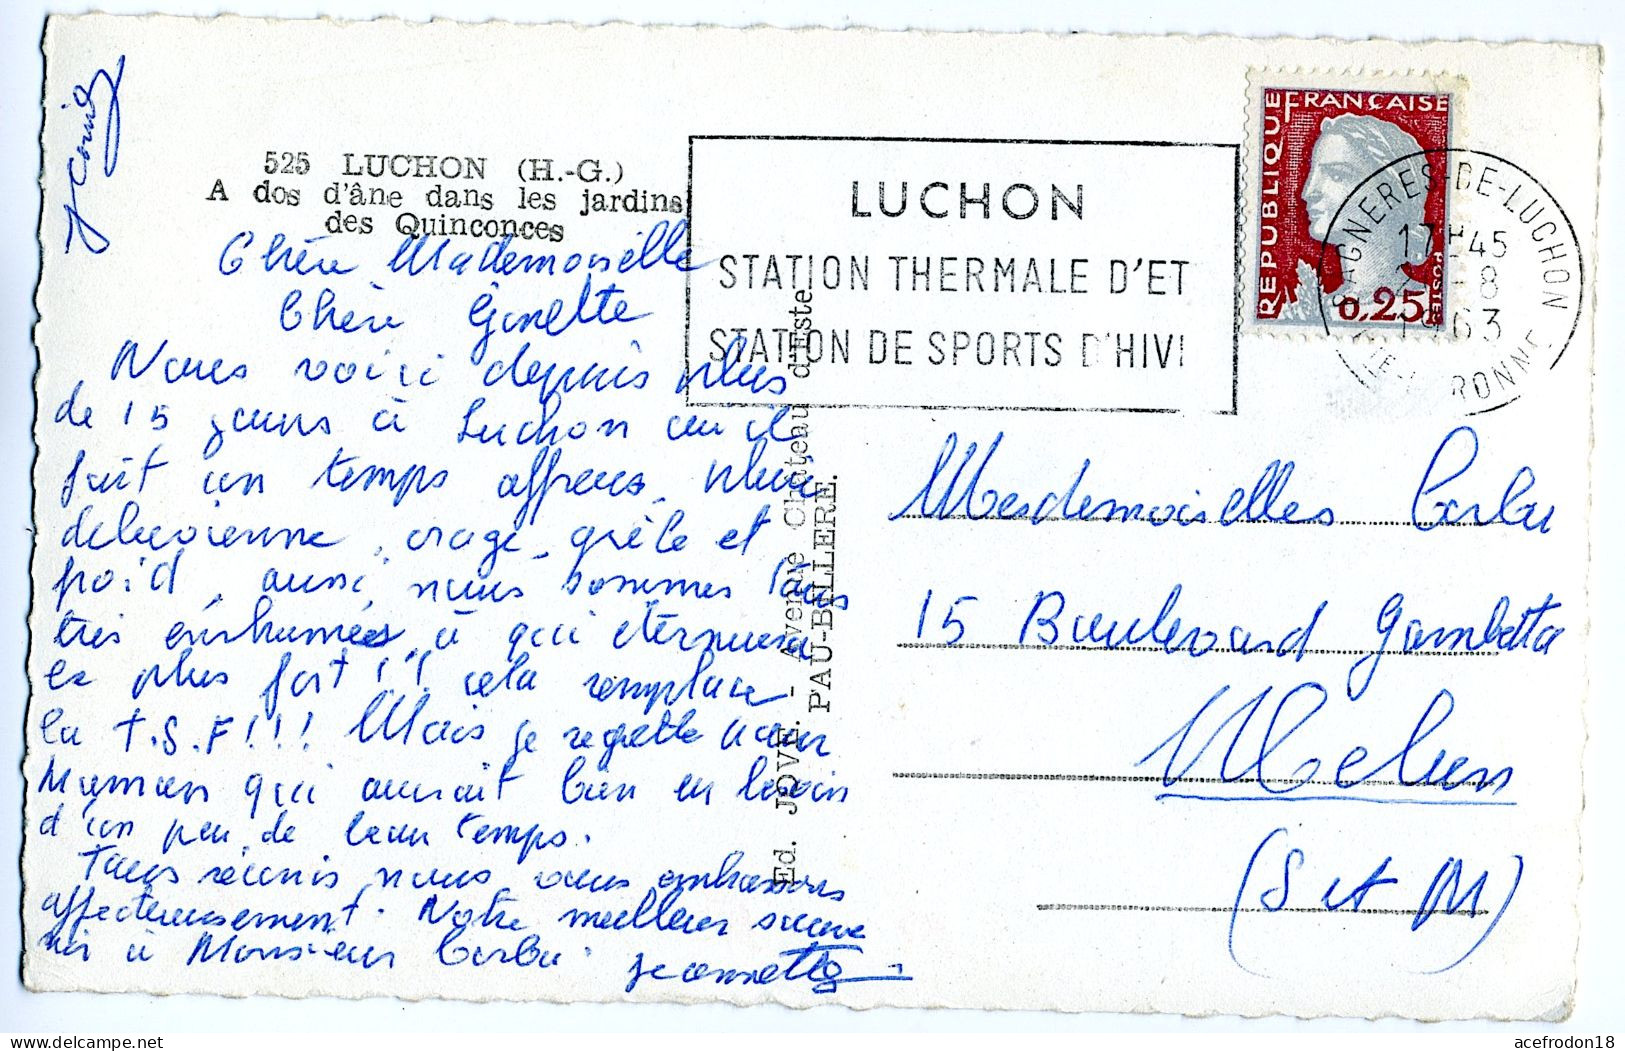 525 LUCHON (H.-G.)
A dos d'âne dans les jardins
des Quinconces
Chère Mademoiselle
Chère Ginette
Nous voici depuis plus
de 15 jours à Luchon ou il
fait un temps affreux, pluie
diluvienne, orage, grêle et
froid, aussi nous sommes tous
très enrhumés, à qui éternuera
le plus fort !! cela remplace
la T.S.F!!! Mais je regrette pour
Maman qui aurait bien eu besoin
d'un peu de beau temps.
Tous réunis nous vous embrassons
affectueusement. Notre meilleur souve
nir à Monsieur Corbu. Jeannette
Ed. JOVÉ. - Avenue Château d'Este
PAU-BILLERE.
LUCHON
STATION THERMALE D'ET
STATION DE SPORTS D'HIV
REPUBLIQUE FRANÇAISE
0,25
POSTES
BAGNERES-DE-LUCHON
17H45
-8
1963
HTE-GARONNE
Mesdemoiselles Corbu
15 Boulevard Gambetta
Melun
(S et M)
acefrodon18
delcampe.net